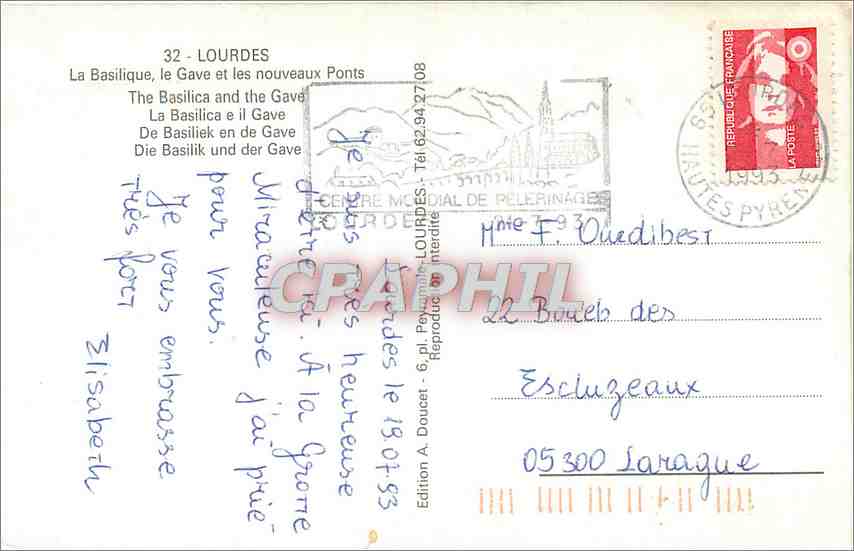 32 - LOURDES
La Basilique, le Gave et les nouveaux Ponts
The Basilica and the Gave
La Basilica e il Gave
De Basiliek en de Gave
Die Basilik und der Gave
Lourdes le 19.07.93
Je suis très heureuse
d'être ici. À la Grotte
Miraculeuse j'ai prié
pour vous.
Je vous embrasse
très fort
Elisabeth
Edition A. Doucet - 6, pl. Peyramale-LOURDES - Tél 62.94.27.08
Reproduction interdite
CENTRE MONDIAL DE PELERINAGE
REPUBLIQUE FRANÇAISE
LA POSTE
1993
65 HAUTES PYRENE
Mme F. Ourdibest
22 des
Escluzeaux
05300 Laragne
CPAPHIL